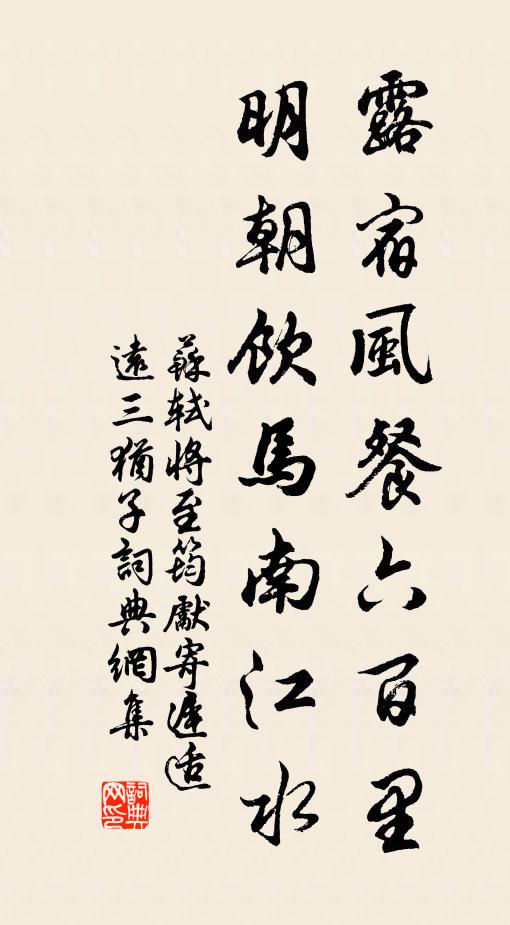 露宿風餐六百里
明朝飲馬南江水
蘇軾將至筠獻寄遲适
遠三猶子詞典網集
詞典网印